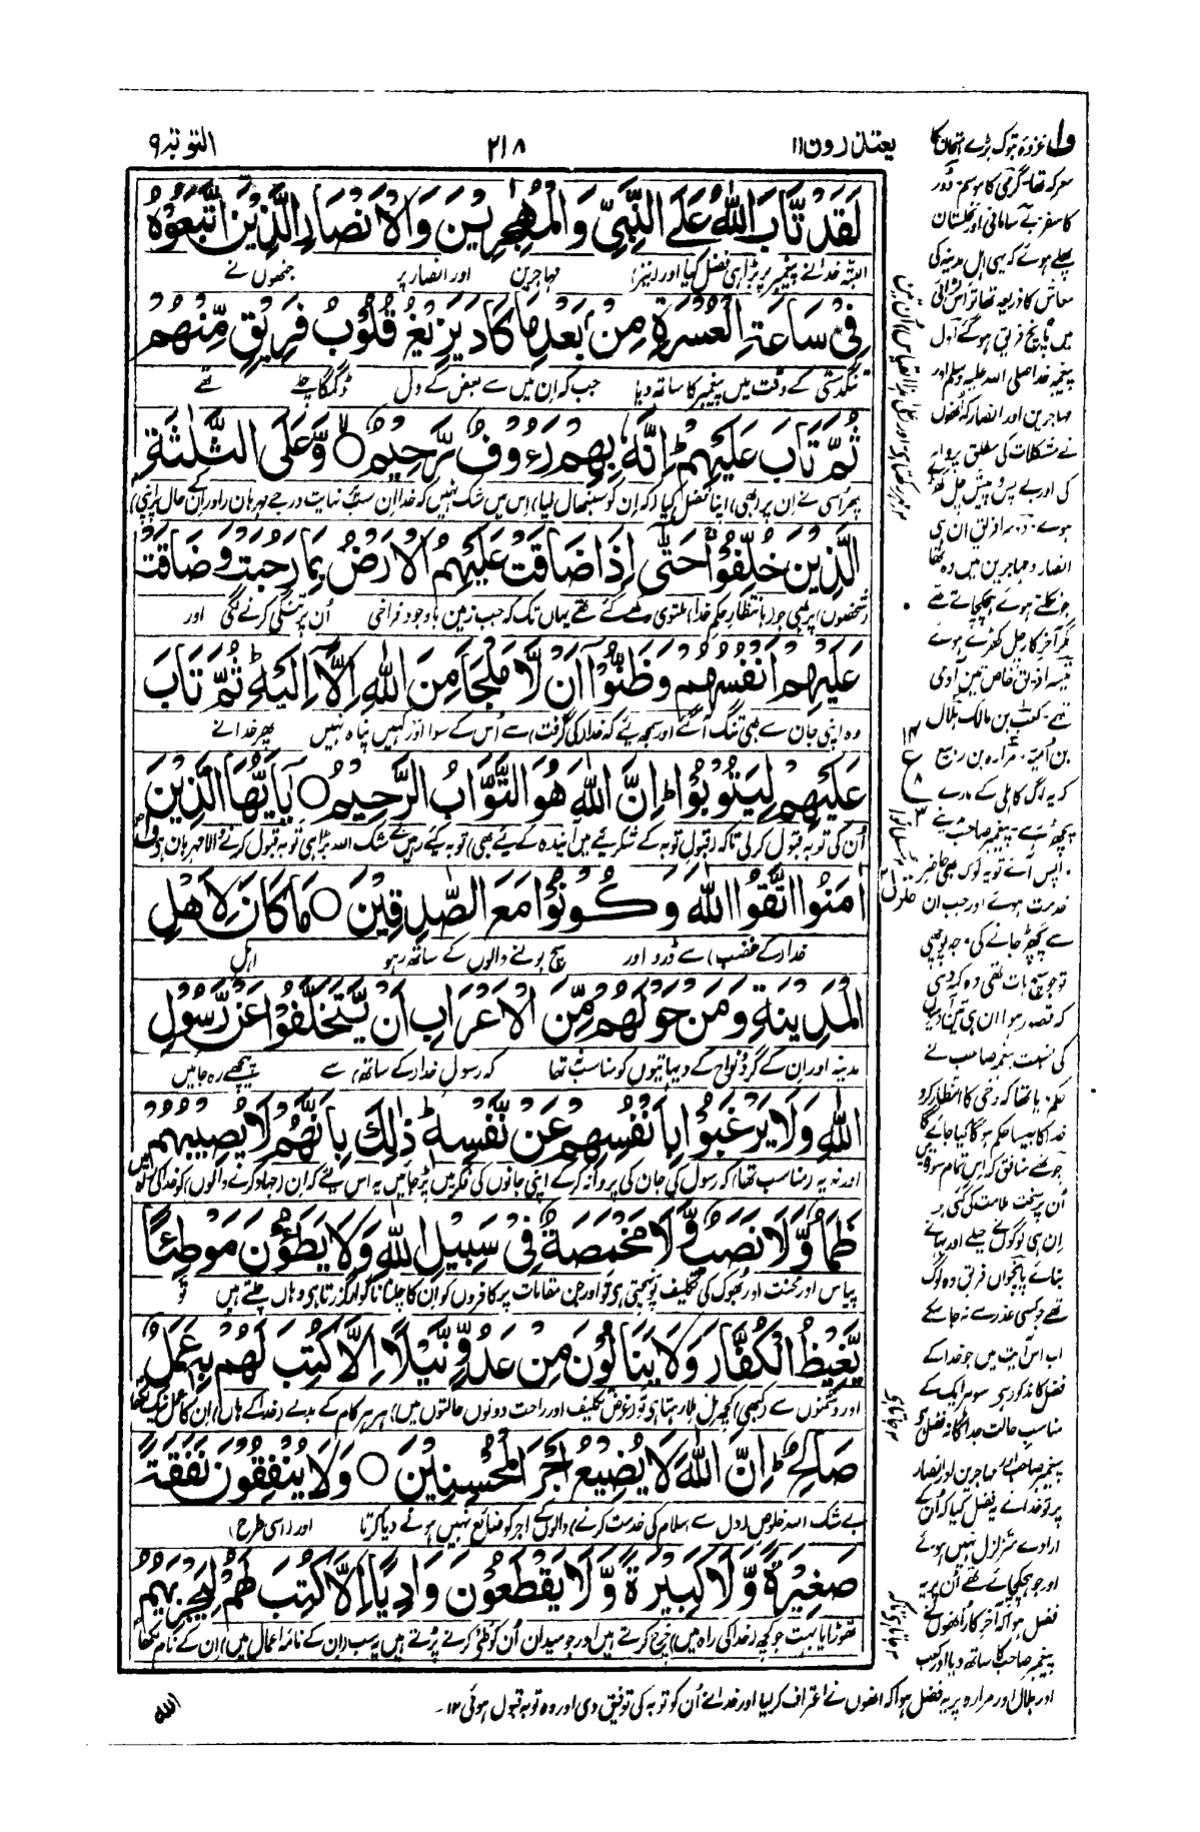 یعتذرون ۱۱
۲۱۸
التوبۃ ۹
لَقَدْ تَّابَ اللّٰهُ عَلَى النَّبِيِّ وَالْمُهٰجِرِيْنَ وَالْاَنْصَارِ الَّذِيْنَ اتَّبَعُوْهُ
البتہ خدا نے پیغمبر پر بڑا ہی فضل کیا اور (نیز) مہاجرین اور انصار پر جنھوں نے
فِيْ سَاعَةِ الْعُسْرَةِ مِنْۢ بَعْدِ مَا كَادَ يَزِيْغُ قُلُوْبُ فَرِيْقٍ مِّنْهُمْ
تنگدستی کے وقت میں پیغمبر کا ساتھ دیا جب کہ ان میں سے بعض کے دل ڈگمگا چلے تھے
ثُمَّ تَابَ عَلَيْهِمْ ؕ اِنَّهٗ بِهِمْ رَءُوْفٌ رَّحِيْمٌ ۝ وَّعَلَى الثَّلٰثَةِ
پھر اسی نے ان پر (بھی) اپنا فضل کیا (کہ ان کو سنبھال لیا) اس میں شک نہیں کہ خدا ان سب پر نہایت درجے مہربان (اور ان کے حال پر اپنی)
الَّذِيْنَ خُلِّفُوْا ؕ حَتّٰۤى اِذَا ضَاقَتْ عَلَيْهِمُ الْاَرْضُ بِمَا رَحُبَتْ وَضَاقَتْ
شخصوں) پر (بھی) جو (بانتظار حکم خدا) ملتوی رکھے گئے تھے یہاں تک کہ جب زمین باوجود فراخی اُن پر تنگی کرنے لگی اور
عَلَيْهِمْ اَنْفُسُهُمْ وَظَنُّوْۤا اَنْ لَّا مَلْجَاَ مِنَ اللّٰهِ اِلَّاۤ اِلَيْهِ ؕ ثُمَّ تَابَ
وہ اپنی جان سے بھی تنگ آگئے اور سمجھ لیے کہ خدا (کی گرفت) سے اُس کے سوا اور کہیں پناہ نہیں پھر خدا نے
عَلَيْهِمْ لِيَتُوْبُوْا ؕ اِنَّ اللّٰهَ هُوَ التَّوَّابُ الرَّحِيْمُ ۝ يٰۤاَيُّهَا الَّذِيْنَ
اُن کی توبہ قبول کر لی تاکہ (قبول توبہ کے شکریے میں آیندہ کے لیے بھی) توبہ کیے رہیں بے شک اللہ بڑا ہی توبہ قبول کرنے والا مہربان ہے
اٰمَنُوا اتَّقُوا اللّٰهَ وَكُوْنُوْا مَعَ الصّٰدِقِيْنَ ۝ مَا كَانَ لِاَهْلِ
خدا (کے غضب) سے ڈرو اور سچ بولنے والوں کے ساتھ رہو اہل
الْمَدِيْنَةِ وَمَنْ حَوْلَهُمْ مِّنَ الْاَعْرَابِ اَنْ يَّتَخَلَّفُوْا عَنْ رَّسُوْلِ
مدینہ اور ان کے گرد نواح کے دیہاتیوں کو مناسب نہ تھا کہ رسول خدا (کے ساتھ) سے پیچھے رہ جائیں
اللّٰهِ وَلَا يَرْغَبُوْا بِاَنْفُسِهِمْ عَنْ نَّفْسِهٖ ؕ ذٰلِكَ بِاَنَّهُمْ لَا يُصِيْبُهُمْ
اور نہ یہ (مناسب تھا) کہ رسول کی جان کی پروا نہ کر کے اپنی جانوں کی فکر میں پڑ جائیں یہ اس لیے کہ ان (جہاد کرنے والوں) کو خدا کی راہ میں
ظَمَاٌ وَّلَا نَصَبٌ وَّلَا مَخْمَصَةٌ فِيْ سَبِيْلِ اللّٰهِ وَلَا يَطَـُٔوْنَ مَوْطِئًا
پیاس اور محنت اور بھوک کی تکلیف پہنچتی ہی تو اور جن مقامات پر کافروں کو ان کا چلنا ناگوار گزرتا ہی وہاں چلتے ہیں تو
يَّغِيْظُ الْكُفَّارَ وَلَا يَنَالُوْنَ مِنْ عَدُوٍّ نَّيْلًا اِلَّا كُتِبَ لَهُمْ بِهٖ عَمَلٌ
اور دشمنوں سے (کبھی) کچھ مل ملا رہتا ہی تو (غرض تکلیف اور راحت دونوں حالتوں میں) ہر ہر کام کے بدلے (خدا کے ہاں) ان کا عمل نیک لکھا
صَالِحٌ ؕ اِنَّ اللّٰهَ لَا يُضِيْعُ اَجْرَ الْمُحْسِنِيْنَ ۝ وَلَا يُنْفِقُوْنَ نَفَقَةً
بے شک اللہ خلوص (دل سے اسلام کی خدمت کرنے) والوں کے اجر کو ضائع نہیں ہونے دیا کرتا اور (اسی طرح)
صَغِيْرَةً وَّلَا كَبِيْرَةً وَّلَا يَقْطَعُوْنَ وَادِيًا اِلَّا كُتِبَ لَهُمْ لِيَجْزِيَهُمُ
تھوڑا یا بہت جو کچھ (خدا کی راہ میں) خرچ کرتے ہیں اور جو میدان اُن کو طے کرنے پڑتے ہیں یہ سب (ان کے نامۂ اعمال میں) ان کے نام لکھا
ف۱ غزوۂ تبوک بڑے امتحان کا
معرکہ تھا۔ گرمی کا موسم۔ دُور
کا سفر۔ بے سامانی اور نخلستان
پھلے ہوئے کہ یہی اہل مدینہ کی
معاش کا ذریعہ تھا تو اس لڑائی
میں پانچ فریق ہو گئے اول
پیغمبر خدا صلی اللہ علیہ وسلم اور
مہاجرین اور انصار کہ اُنھوں
نے مشکلات کی مطلق پروا نہ
کی اور بے پس وپیش چل کھڑے
ہوے۔ دوسرا فریق ان ہی
انصار و مہاجرین میں وہ تھا
جو نکلتے ہوئے ہچکچاتے تھے
مگر آخر کار چل کھڑے ہوے
تیسرا فریق خاص تین آدمی
تھے۔ کعب بن مالک ہلال
بن امیہ۔ مرارہ بن ربیع
کہ یہ لوگ کاہلی کے مارے
پیچھے رہے پیغمبر صاحب
واپس آے تو یہ لوگ بھی حاضر
خدمت ہوئے اور جب ان
سے پچھڑ جانے کی وجہ پوچھی
تو جو سچ بات تھی وہ کہہ دی
کہ قصور ہوا ان ہی تین
کی نسبت پیغمبر صاحب نے
حکم دیا تھا کہ وحی کا انتظار کرو
خدا کا جیسا حکم ہوگا کیا جائے گا
چوتھے منافق کہ اس تمام سورت میں
اُن پر سخت ملامت کی گئی ہے
ان ہی لوگوں نے حیلے اور بہانے
بنائے پانچواں فریق وہ لوگ
تھے جو کسی عذر سے نہ جا سکے
اب اس آیت میں جو خدا کے
فضل کا مذکور ہی سو ہر ایک کے
مناسب حالت جداگانہ فضل ہی
پیغمبر صاحب اور مہاجرین اور انصار
پر تو خدا نے یہ فضل کیا کہ اُن کے
ارادے متزلزل نہیں ہوئے
اور جو ہچکچائے تھے اُن پر یہ
فضل ہوا کہ آخر کار اُنھوں نے
پیغمبر صاحب کا ساتھ دیا اور کعب
اور ہلال اور مرارہ پر یہ فضل ہوا کہ انھوں نے اعتراف کر لیا اور خدا نے اُن کو توبہ کی توفیق دی اور وہ توبہ قبول ہوئی ۱۲۔
اللہ